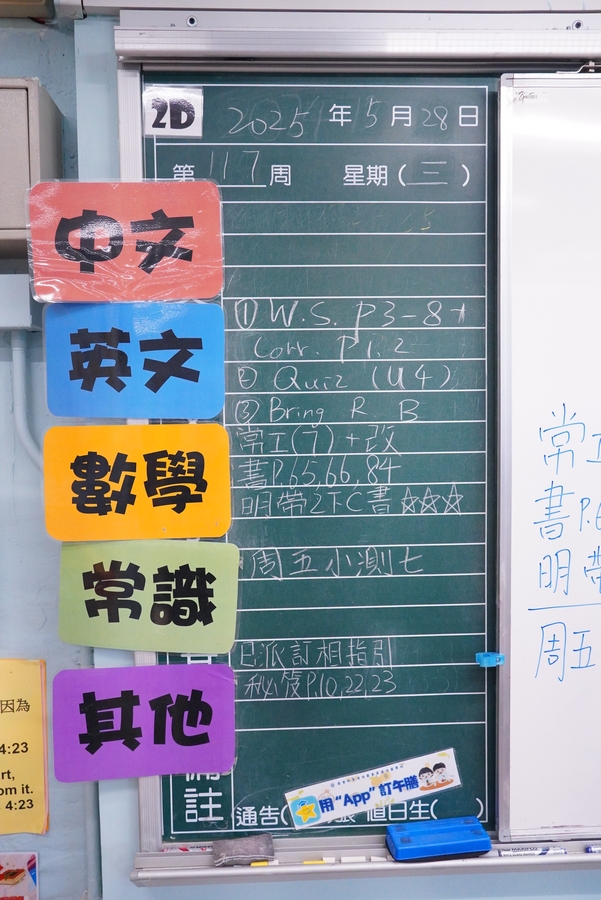 2D
2025年5月28日
第117周 星期(三)
中文
英文
① W.S. P3-8
Corr. P1,2
② Quiz (U4)
③ Bring R B
數學
常工(7)+改
書P.65,66,84
明帶2下C書☆☆☆
常識
周五小測七
其他
已派訂相指引
P.10,22,23
備註
通告( 值日生( )
用“App”訂午膳
因為
4:23
rt,
om it.
4:23
常工
書P.6
明帶
周五